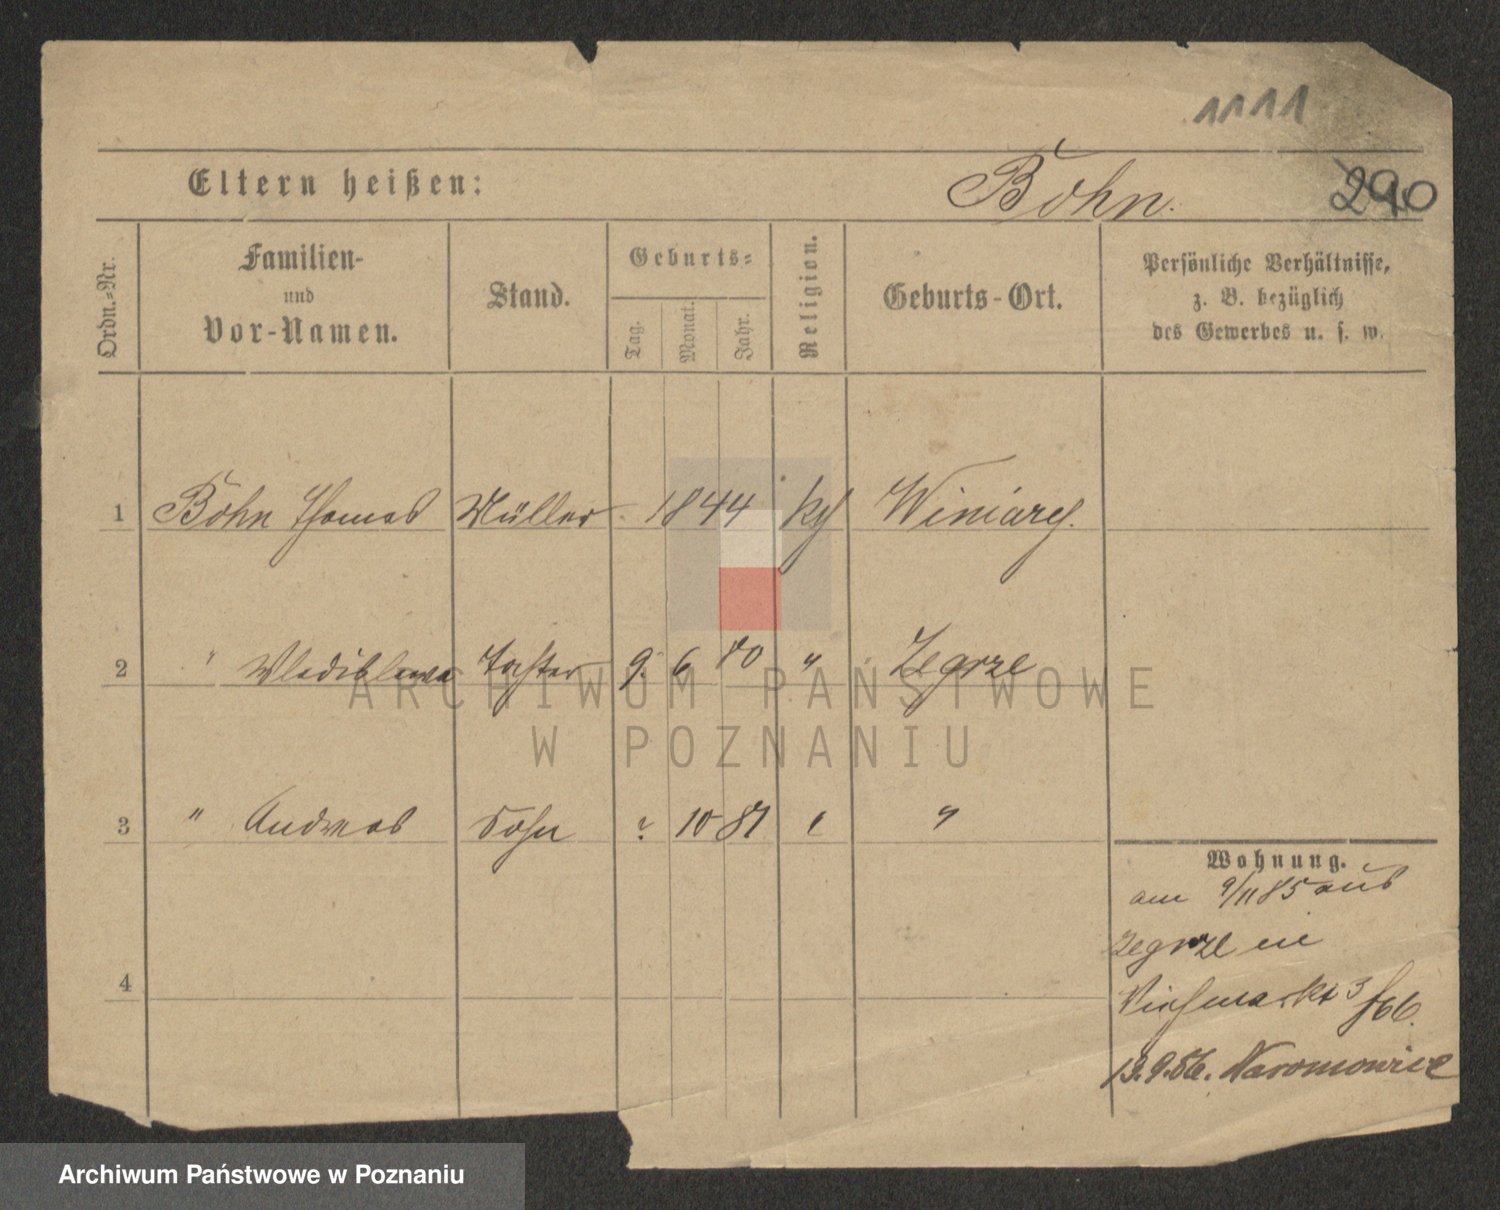 1111
Eltern heißen: Bohn. 290
Ordn.-Nr. Familien- und Vor-Namen. Stand. Geburts- Tag. Monat. Jahr. Religion. Geburts-Ort. Persönliche Verhältnisse, z. B. bezüglich des Gewerbes u. s. w.
1 Bohn Thomas Müller 1844 kth Winiary.
2 " Wladislawa Tochter 9. 6 80 " Zegrze
3 " Andreas Sohn ? 10 81 " "
Wohnung.
am 9/11 85 aus
Zegrze in
4 Viehmarkt 3
13.9.86. Naromowice
ARCHIWUM PAŃSTWOWE
W POZNANIU
Archiwum Państwowe w Poznaniu